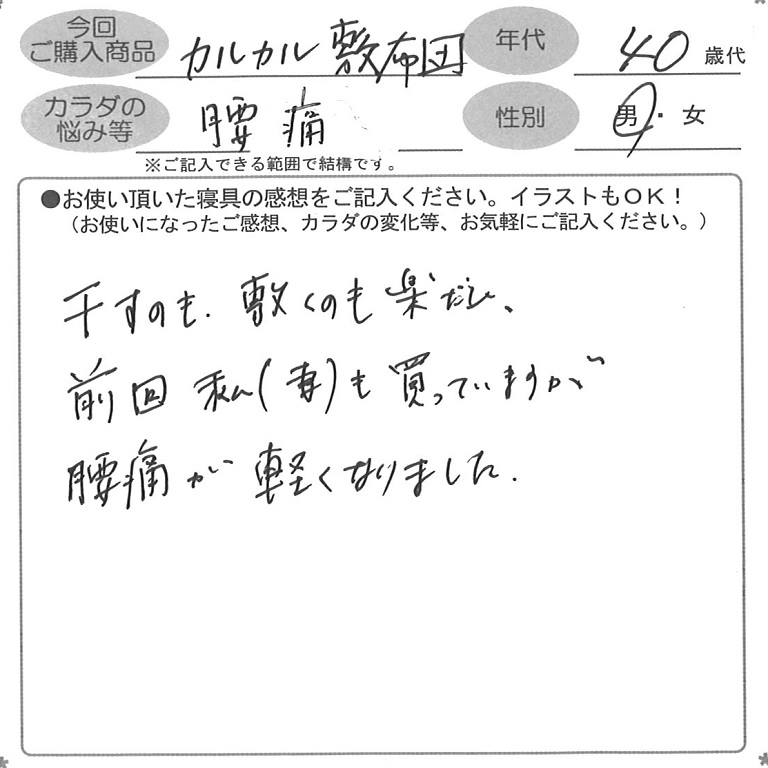 今回
ご購入商品 カルカル敷布団 年代 40 歳代
カラダの
悩み等 腰痛 性別 男・女
※ご記入できる範囲で結構です。
●お使い頂いた寝具の感想をご記入ください。イラストもOK！
（お使いになったご感想、カラダの変化等、お気軽にご記入ください。）
干すのも、敷くのも楽だし、
前回 私(妻)も買っていますが
腰痛が軽くなりました.